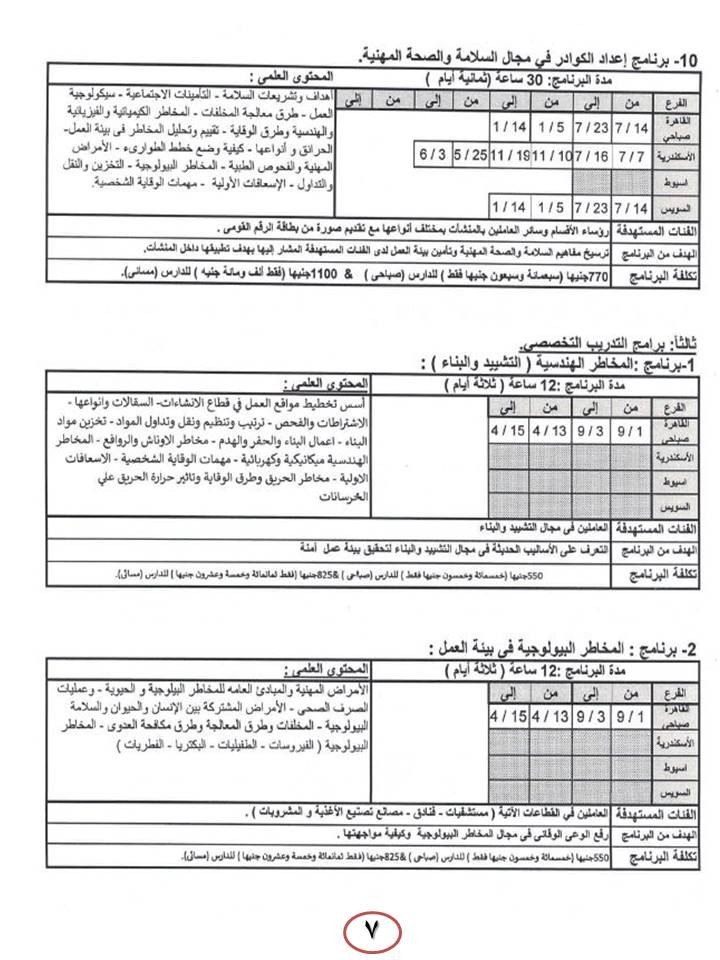 10- برنامج إعداد الكوادر في مجال السلامة والصحة المهنية.
مدة البرنامج: 30 ساعة (ثمانية أيام )
المحتوى العلمى :
الفرع من إلى من إلى من إلى من إلى
القاهرة صباحي 7/14 7/23 1/5 1/14
الأسكندرية 7/7 7/16 11/10 11/19 5/25 6/3
اسيوط
السويس 7/14 7/23 1/5 1/14
أهداف وتشريعات السلامة - التأمينات الاجتماعية - سيكولوجية
العمل - طرق معالجة المخلفات - المخاطر الكيميائية والفيزيائية
والهندسية وطرق الوقاية - تقييم وتحليل المخاطر فى بيئة العمل-
الحرائق و أنواعها - كيفية وضع خطط الطوارىء - الأمراض
المهنية والفحوص الطبية - المخاطر البيولوجية - التخزين والنقل
والتداول - الإسعافات الأولية - مهمات الوقاية الشخصية.
الفئات المستهدفة رؤساء الأقسام وسائر العاملين بالمنشآت بمختلف أنواعها مع تقديم صورة من بطاقة الرقم القومى .
الهدف من البرنامج ترسيخ مفاهيم السلامة والصحة المهنية وتأمين بيئة العمل لدى الفئات المستهدفة المشار إليها بهدف تطبيقها داخل المنشآت.
تكلفة البرنامج 770جنيها (سبعمائة وسبعون جنيها فقط ) للدارس (صباحى ) & 1100جنيها (فقط ألف ومائة جنيه ) للدارس (مسائى).
ثالثاً: برامج التدريب التخصصي.
1-برنامج :المخاطر الهندسية ( التشييد والبناء ) :
مدة البرنامج :12 ساعة ( ثلاثة أيام )
المحتوى العلمى :
الفرع من إلى من إلى
القاهرة صباحى 9/1 9/3 4/13 4/15
الأسكندرية
اسيوط
السويس
أسس تخطيط مواقع العمل في قطاع الانشاءات- السقالات وانواعها -
الاشتراطات والفحص - ترتيب وتنظيم ونقل وتداول المواد - تخزين مواد
البناء - اعمال البناء والحفر والهدم - مخاطر الاوناش والروافع - المخاطر
الهندسية ميكانيكية وكهربائية - مهمات الوقاية الشخصية - الاسعافات
الاولية - مخاطر الحريق وطرق الوقاية وتاثير حرارة الحريق علي
الخرسانات
الفئات المستهدفة العاملين فى مجال التشييد والبناء
الهدف من البرنامج التعرف على الأساليب الحديثة فى مجال التشييد والبناء لتحقيق بيئة عمل آمنة
تكلفة البرنامج 550جنيها (خمسمائة وخمسون جنيها فقط ) للدارس (صباحى ) &825جنيها (فقط ثمانمائة وخمسة وعشرون جنيها ) للدارس (مسائى).
2- برنامج : المخاطر البيولوجية فى بيئة العمل :
مدة البرنامج :12 ساعة ( ثلاثة أيام )
المحتوى العلمى :
الفرع من إلى من إلى
القاهرة صباحى 9/1 9/3 4/13 4/15
الأسكندرية
اسيوط
السويس
الأمراض المهنية والمبادئ العامه للمخاطر البيلوجية و الحيوية - وعمليات
الصرف الصحى - الأمراض المشتركة بين الإنسان والحيوان والسلامة
البيولوجية - المخلفات وطرق المعالجة وطرق مكافحة العدوى - المخاطر
البيولوجية ( الفيروسات - الطفيليات - البكتريا - الفطريات )
الفئات المستهدفة العاملين في القطاعات الآتية ( مستشفيات - فنادق - مصانع تصنيع الأغذية و المشروبات ) .
الهدف من البرنامج رفع الوعى الوقائى فى مجال المخاطر البيولوجية وكيفية مواجهتها .
تكلفة البرنامج 550جنيها (خمسمائة وخمسون جنيها فقط ) للدارس (صباحى ) &825جنيها (فقط ثمانمائة وخمسة وعشرون جنيها ) للدارس (مسائى).
٧